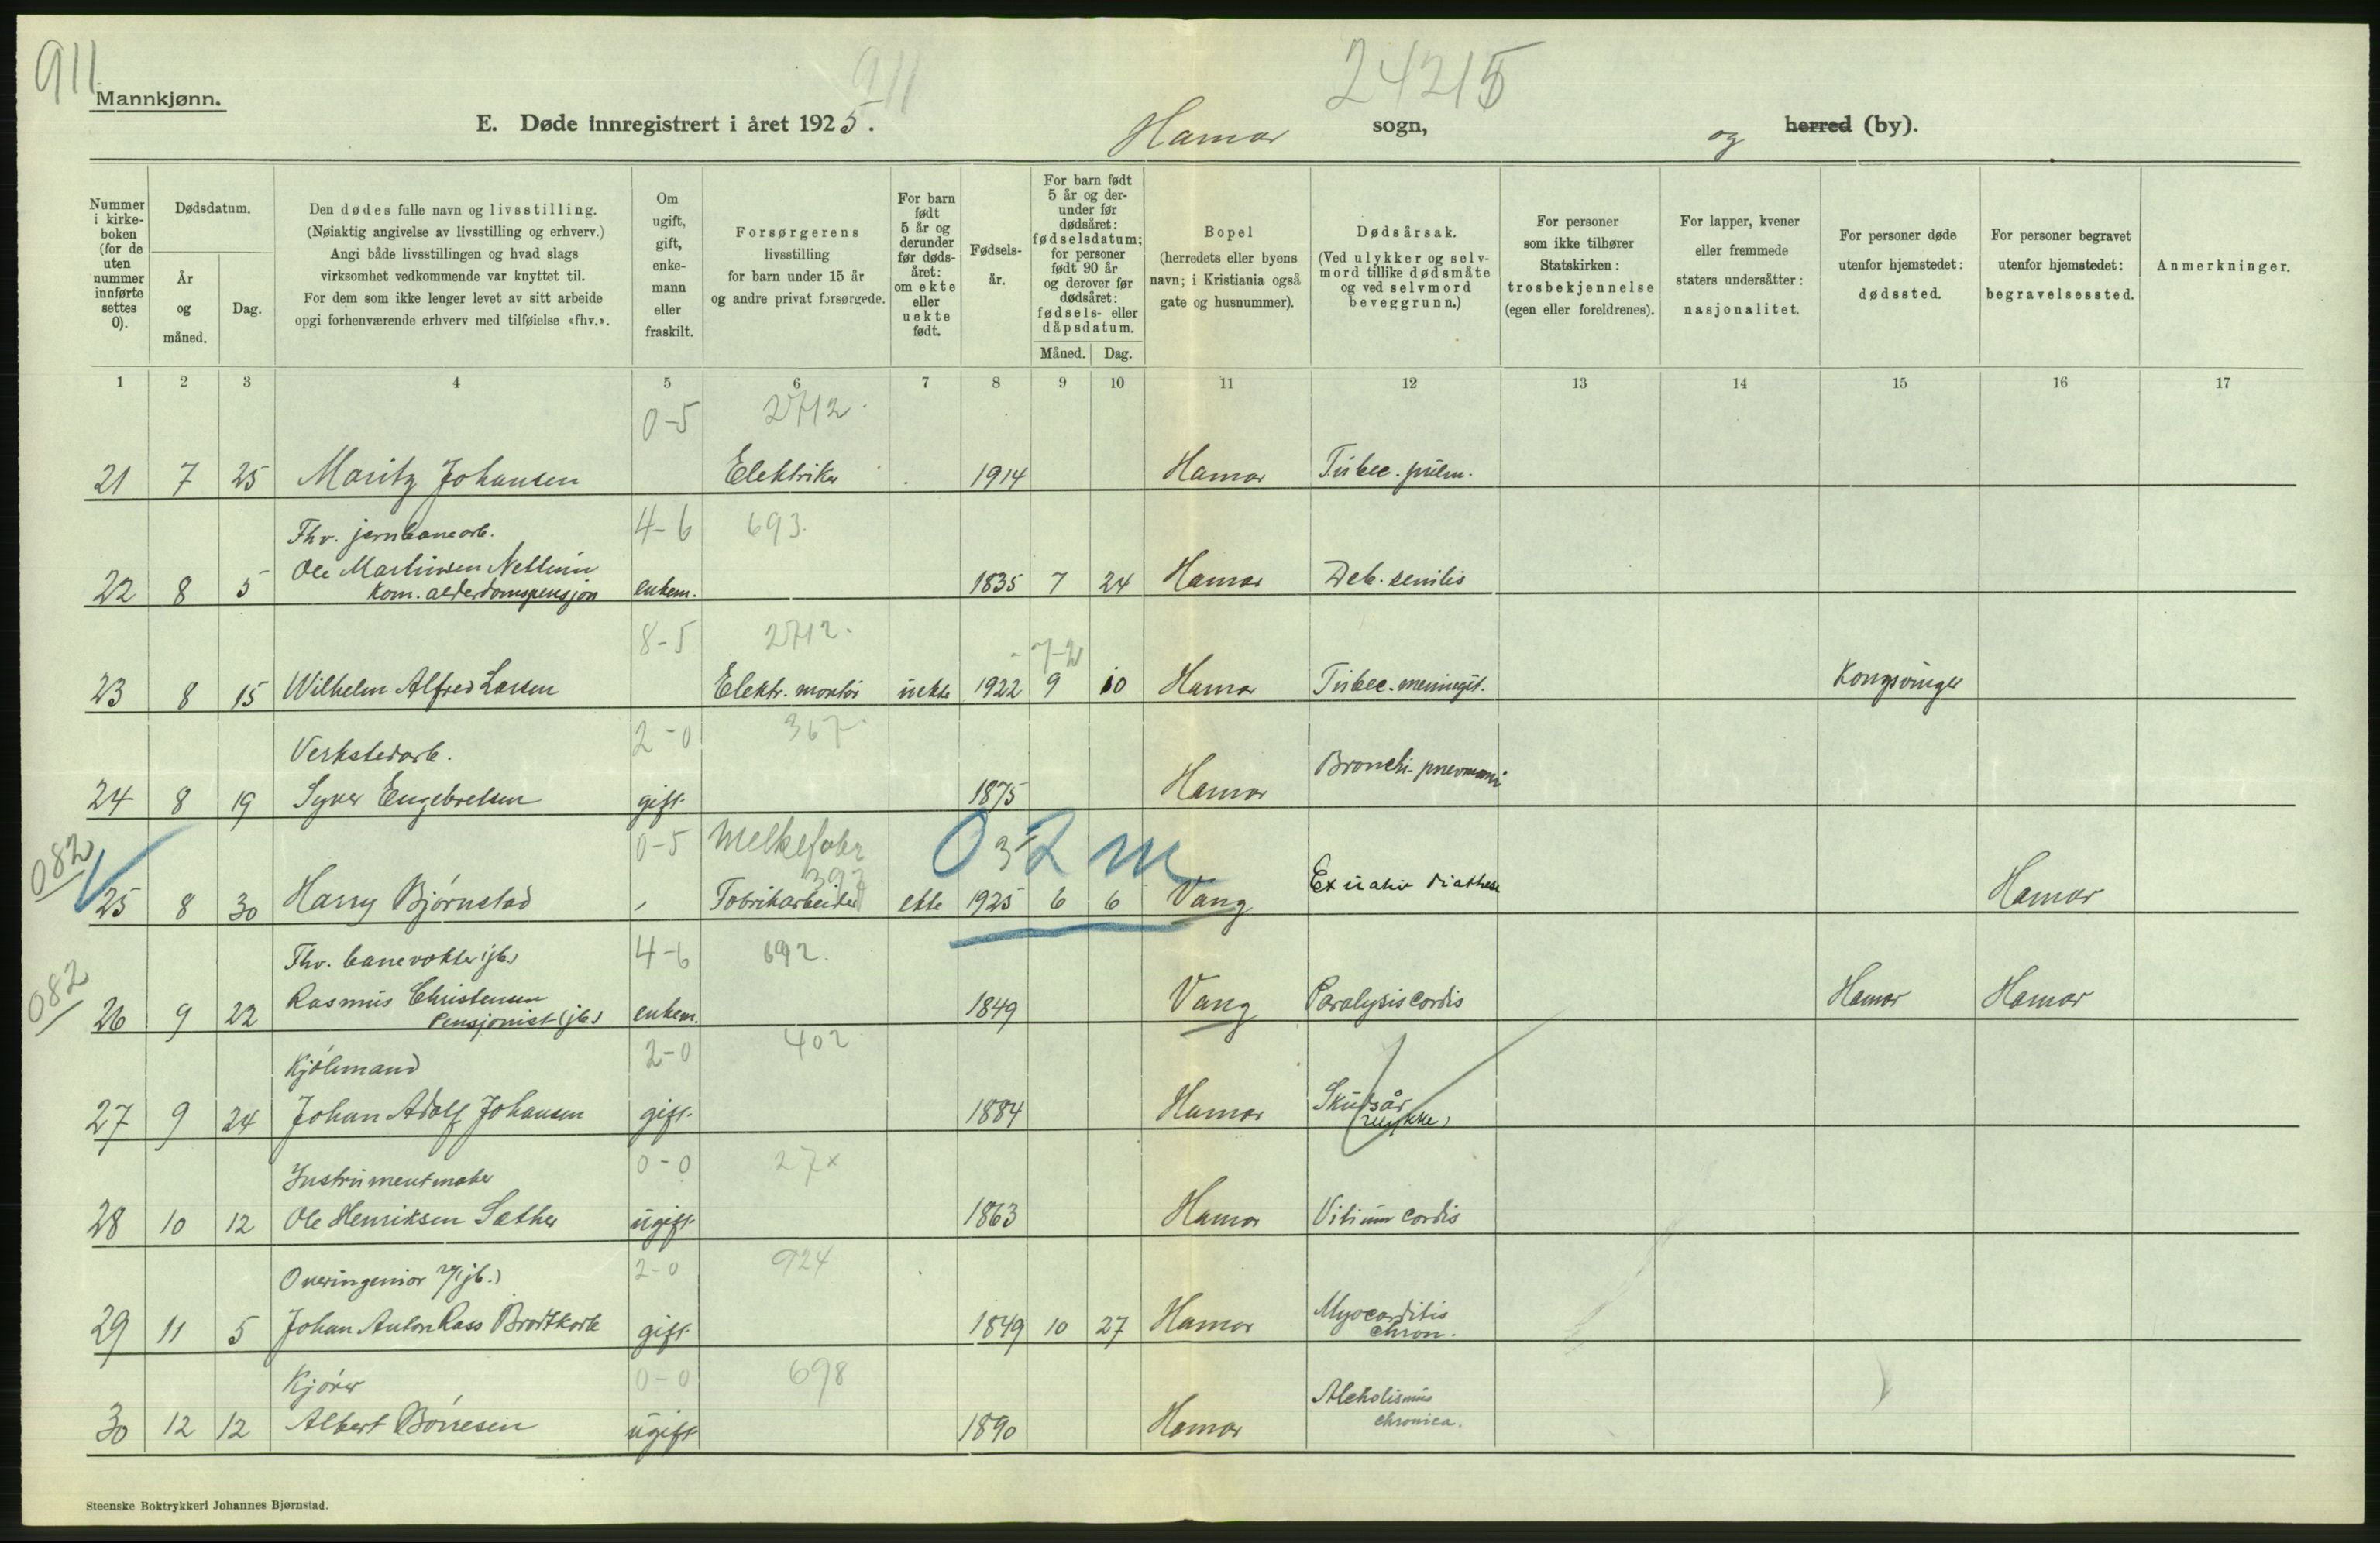 911
911
24215
Mannkjønn.
E. Døde innregistrert i året 1925. Hamar sogn, og herred (by).
Nummer i kirke-boken (for de uten nummer innførte settes 0).
Dødsdatum.
År og måned.
Dag.
Den dødes fulle navn og livsstilling.
(Nøiaktig angivelse av livsstilling og erhverv.)
Angi både livsstillingen og hvad slags
virksomhet vedkommende var knyttet til.
For dem som ikke lenger levet av sitt arbeide
opgi forhenværende erhverv med tilføielse «fhv.».
Om ugift, gift, enke-mann eller fraskilt.
Forsørgerens
livsstilling
for barn under 15 år
og andre privat forsørgede.
For barn født 5 år og derunder før døds-året: om ekte eller uekte født.
Fødsels-år.
For barn født 5 år og der-under før dødsåret: fødselsdatum; for personer født 90 år og derover før dødsåret: fødsels- eller dåpsdatum.
Måned. Dag.
Bopel
(herredets eller byens
navn; i Kristiania også
gate og husnummer).
Dødsårsak.
(Ved ulykker og selv-
mord tillike dødsmåte
og ved selvmord
beveggrunn.)
For personer
som ikke tilhører
Statskirken:
trosbekjennelse
(egen eller foreldrenes).
For lapper, kvener
eller fremmede
staters undersåtter:
nasjonalitet.
For personer døde
utenfor hjemstedet:
dødssted.
For personer begravet
utenfor hjemstedet:
begravelsessted.
Anmerkninger.
1 2 3 4 5 6 7 8 9 10 11 12 13 14 15 16 17
0-5 2712
21 7 25 Maritz Johansen Elektriker 1914 Hamar Tubec. pulm.
Fhv. jernbanearb. 4-6 693.
Ole Martinsen Nettum
22 8 5 Kom. alderdomspensjon enkem. 1835 7 24 Hamar Deb. senilis
8-5 2712. 7-2
23 8 15 Wilhelm Alfred Larsen Elektr. montör uekte 1922 9 10 Hamar Tubec. meningit. Kongsvinger
Verkstedarb. 2-0 367
24 8 19 Syver Engebretsen gift 1875 Hamar Bronchi-pneumoni
082 0-5 Melkefabr 397 032 m
25 8 30 Harry Bjørnstad Fabrikarbeider ekte 1925 6 6 Vang Exudativ diathese Hamar
Fhv. banevokter (jb.) 4-6 692.
082
26 9 22 Rasmus Christensen enkem. 1849 Vang Paralysis cordis Hamar Hamar
Pensjonist (jb.)
Kjölemand 2-0 402
27 9 24 Johan Adolf Johansen gift 1884 Hamar Skudsår
(ulykke)
Instrumentmaker 0-0 27x
28 10 12 Ole Henriksen Sæther ugift 1863 Hamar Vitium cordis
Overingeniør (jb.) 2-0 924
29 11 5 Johan Anton Rass Brodtkorb gift 1849 10 27 Hamar Myocarditis
chron.
Kjörer 0-0 698
30 12 12 Albert Börresen ugift 1890 Hamar Alcholismus
chronica.
Steenske Boktrykkeri Johannes Bjørnstad.